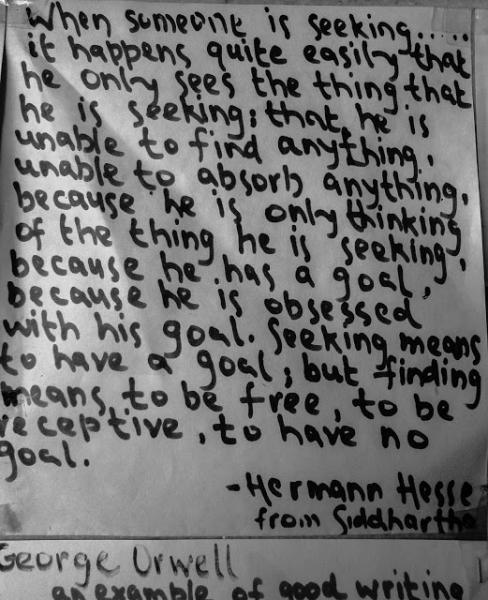 When someone is seeking.....
it happens quite easily that
he only sees the thing that
he is seeking; that he is
unable to find anything,
unable to absorb anything,
because he is only thinking
of the thing he is seeking,
because he has a goal,
because he is obsessed
with his goal. Seeking means
to have a goal; but finding
means, to be free, to be
receptive, to have no
goal.
-Hermann Hesse
from Siddhartha
George Orwell
an example of good writing